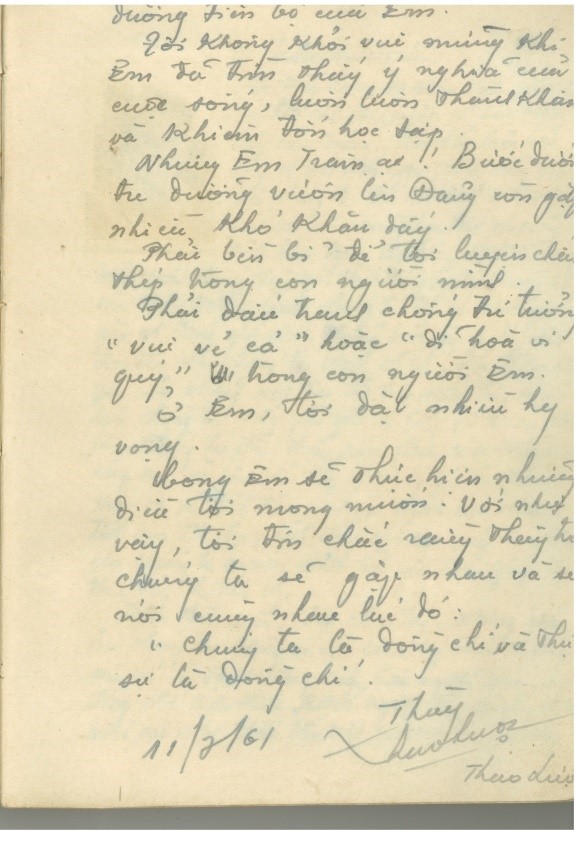 đường tiến bộ của Em.
Tôi không khỏi vui mừng khi
Em đã tìm thấy ý nghĩa của
cuộc sống, luôn luôn thành khẩn
và khiêm tốn học tập.
Nhưng Em Trâm ạ! Bước đườn
tu dưỡng vươn lên Đảng còn gặp
nhiều khó khăn đấy.
Phải bền bỉ để tôi luyện chấ
thép trong con người mình.
Phải đấu tranh chống tư tưởn
"vui vẻ cả" hoặc "dĩ hoà vi
quý" trong con người Em.
Ở Em, tôi đặt nhiều hy
vọng.
Mong Em sẽ thực hiện những
điều tôi mong muốn. Với như
vậy, tôi tin chắc rằng thầy tr
chúng ta sẽ gặp nhau và sẽ
nói cùng nhau lúc đó:
"Chúng ta là đồng chí và thự
sự là đồng chí.
Thầy
11/3/61